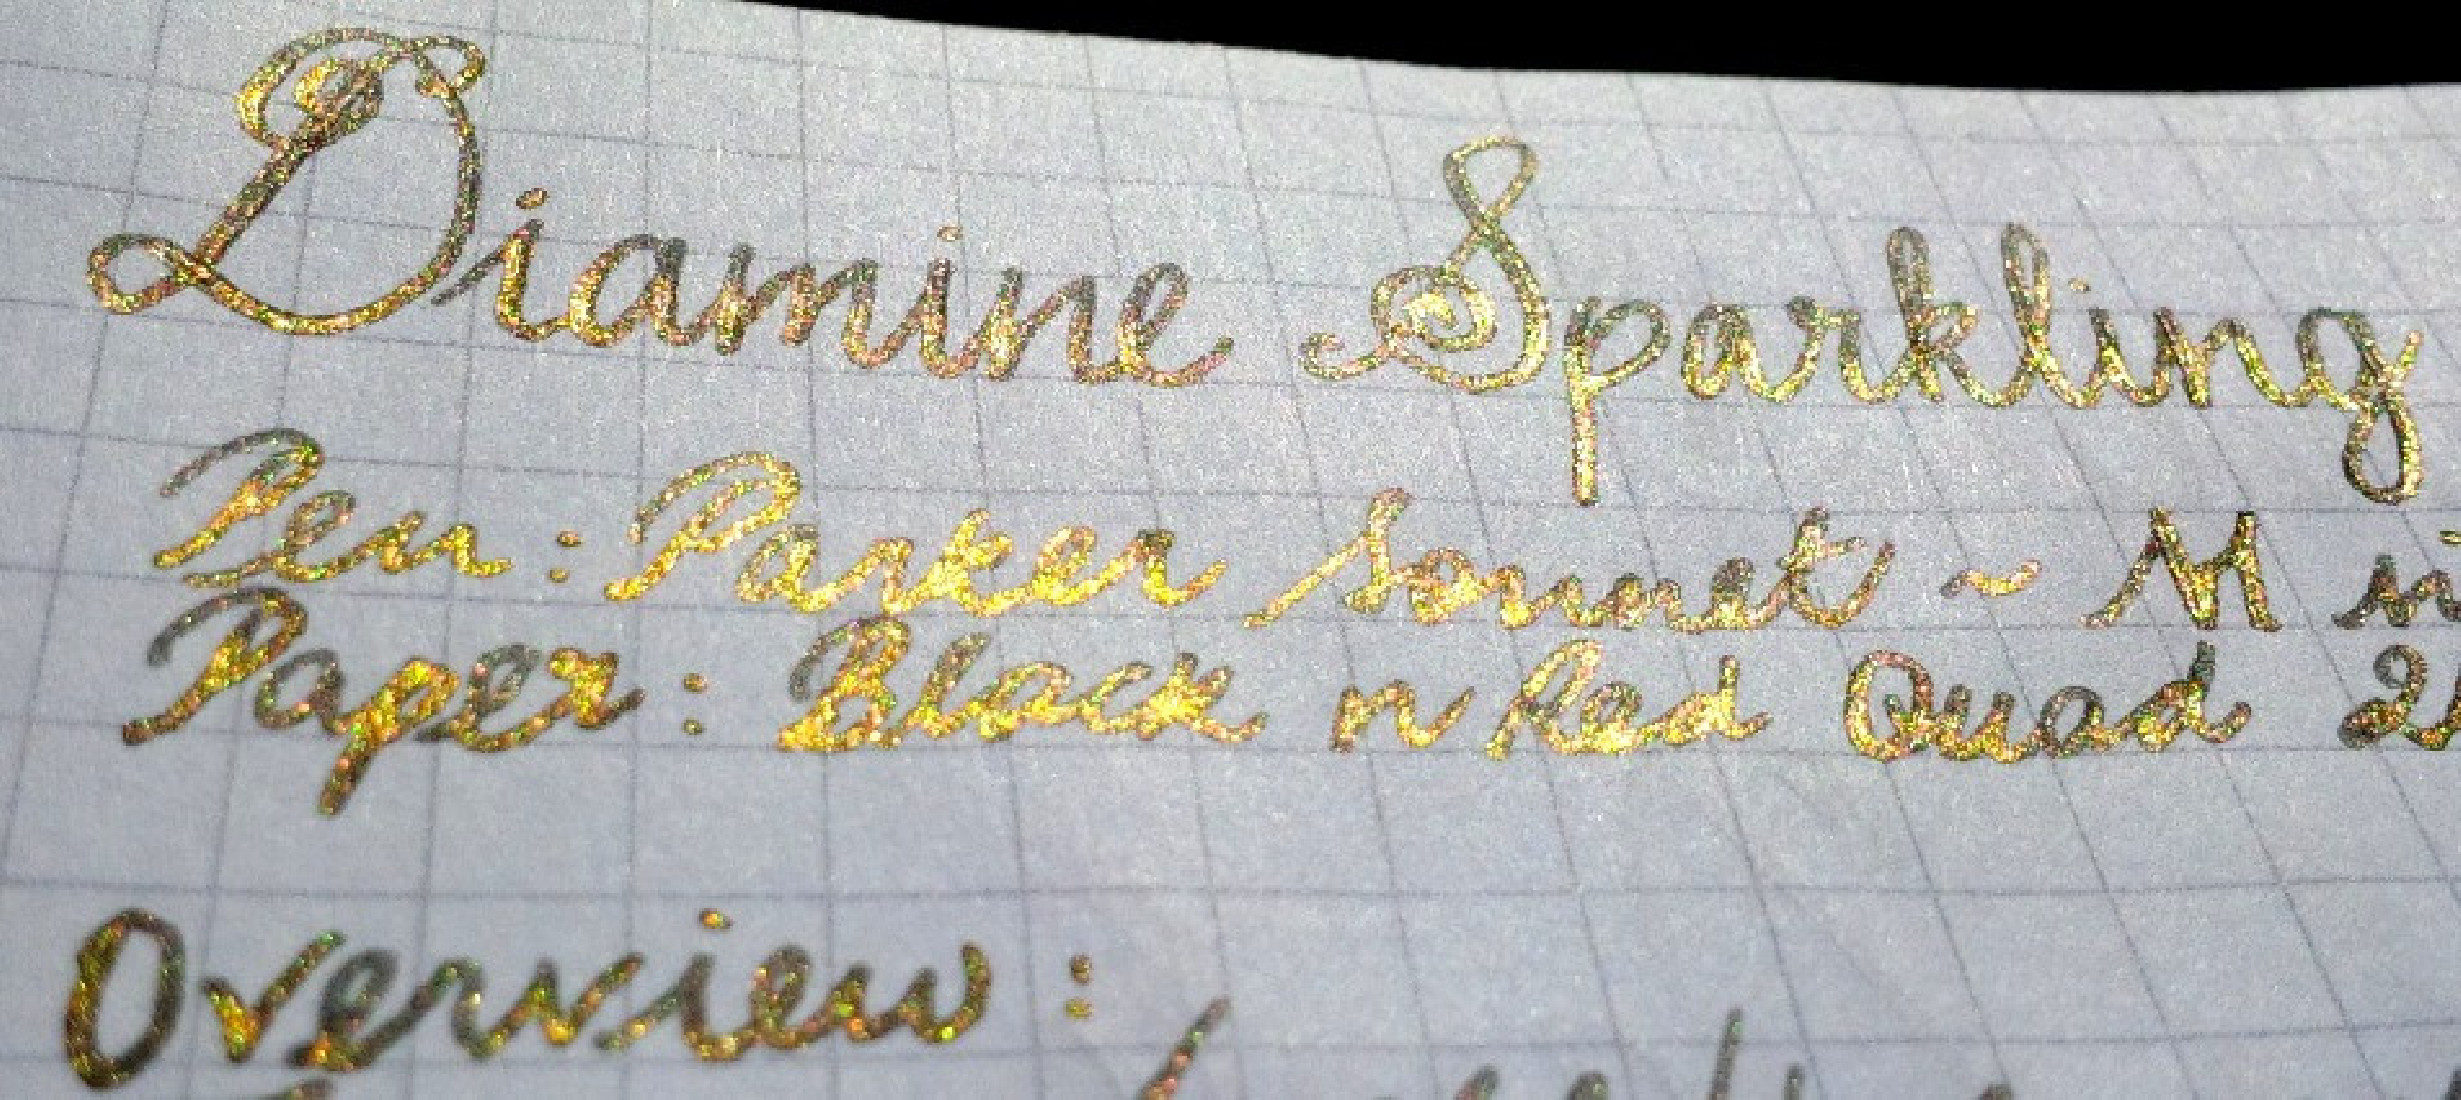 Diamine Sparkling
Pen: Parker Sonnet ~ M
Paper: Black n Red Quad
Overview: